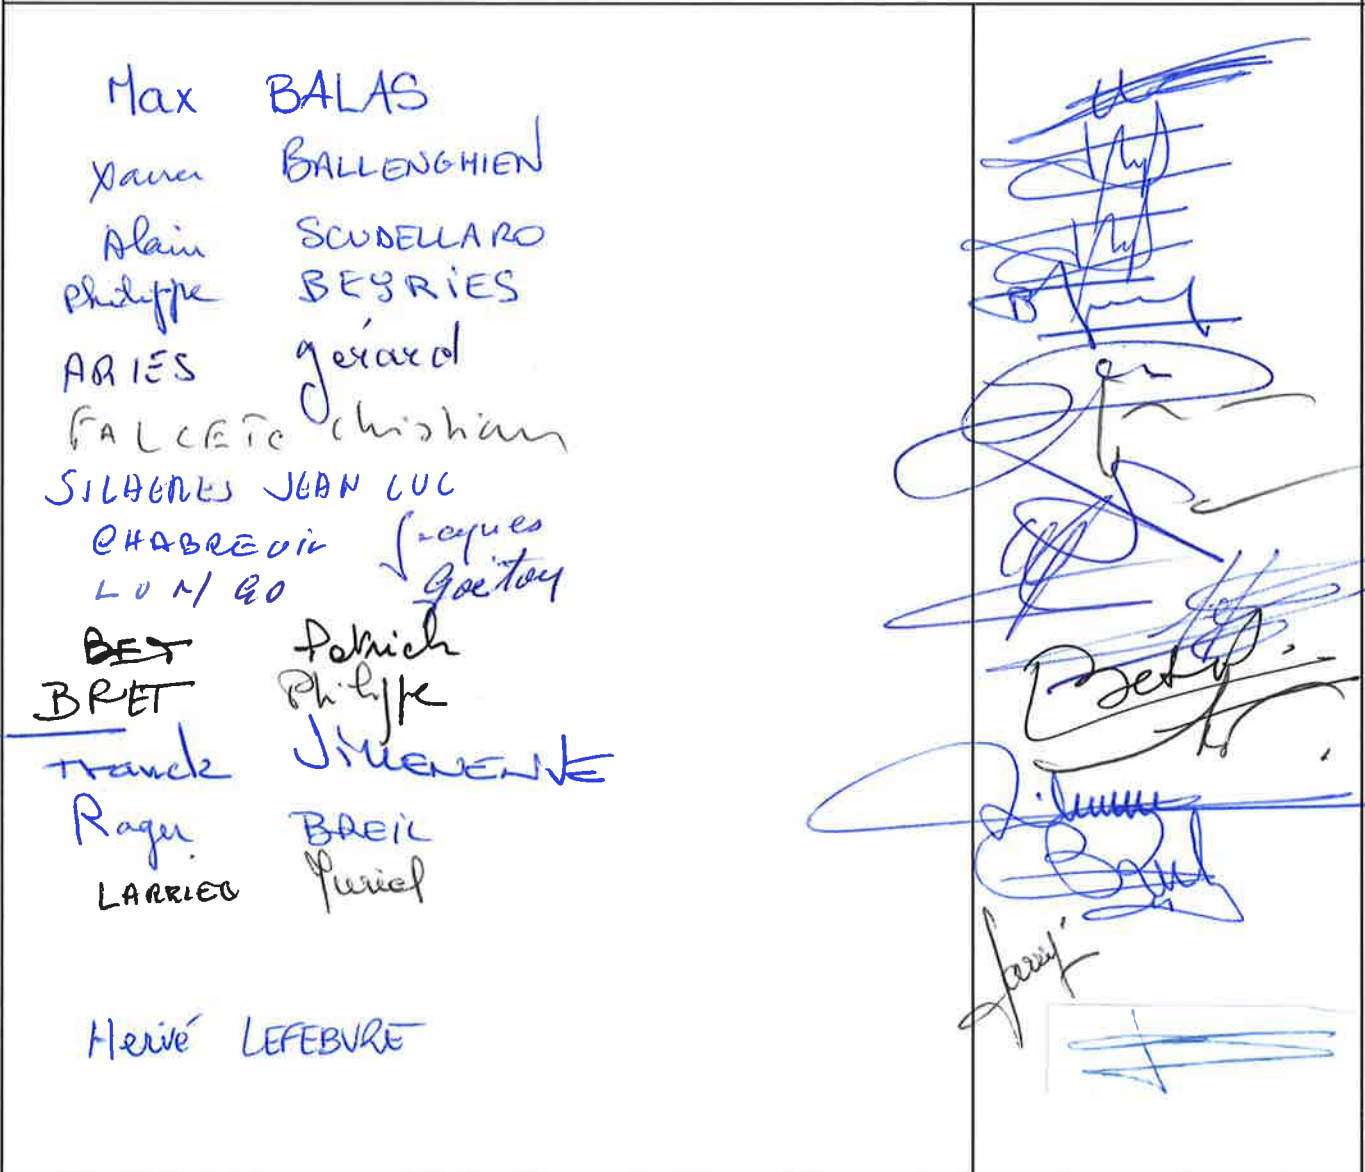 Max BALAS
Xavier BALLENGHIEN
Alain SCUDELLARO
Philippe BEYRIES
ARIES gérard
FALCETO Christian
JEAN LUC
CHABREUIL Jacques
LONGO Gaëtan
BET Patrick
BRET Philippe
Franck
Roger BREIL
LARRIEU Muriel
Hervé LEFEBVRE